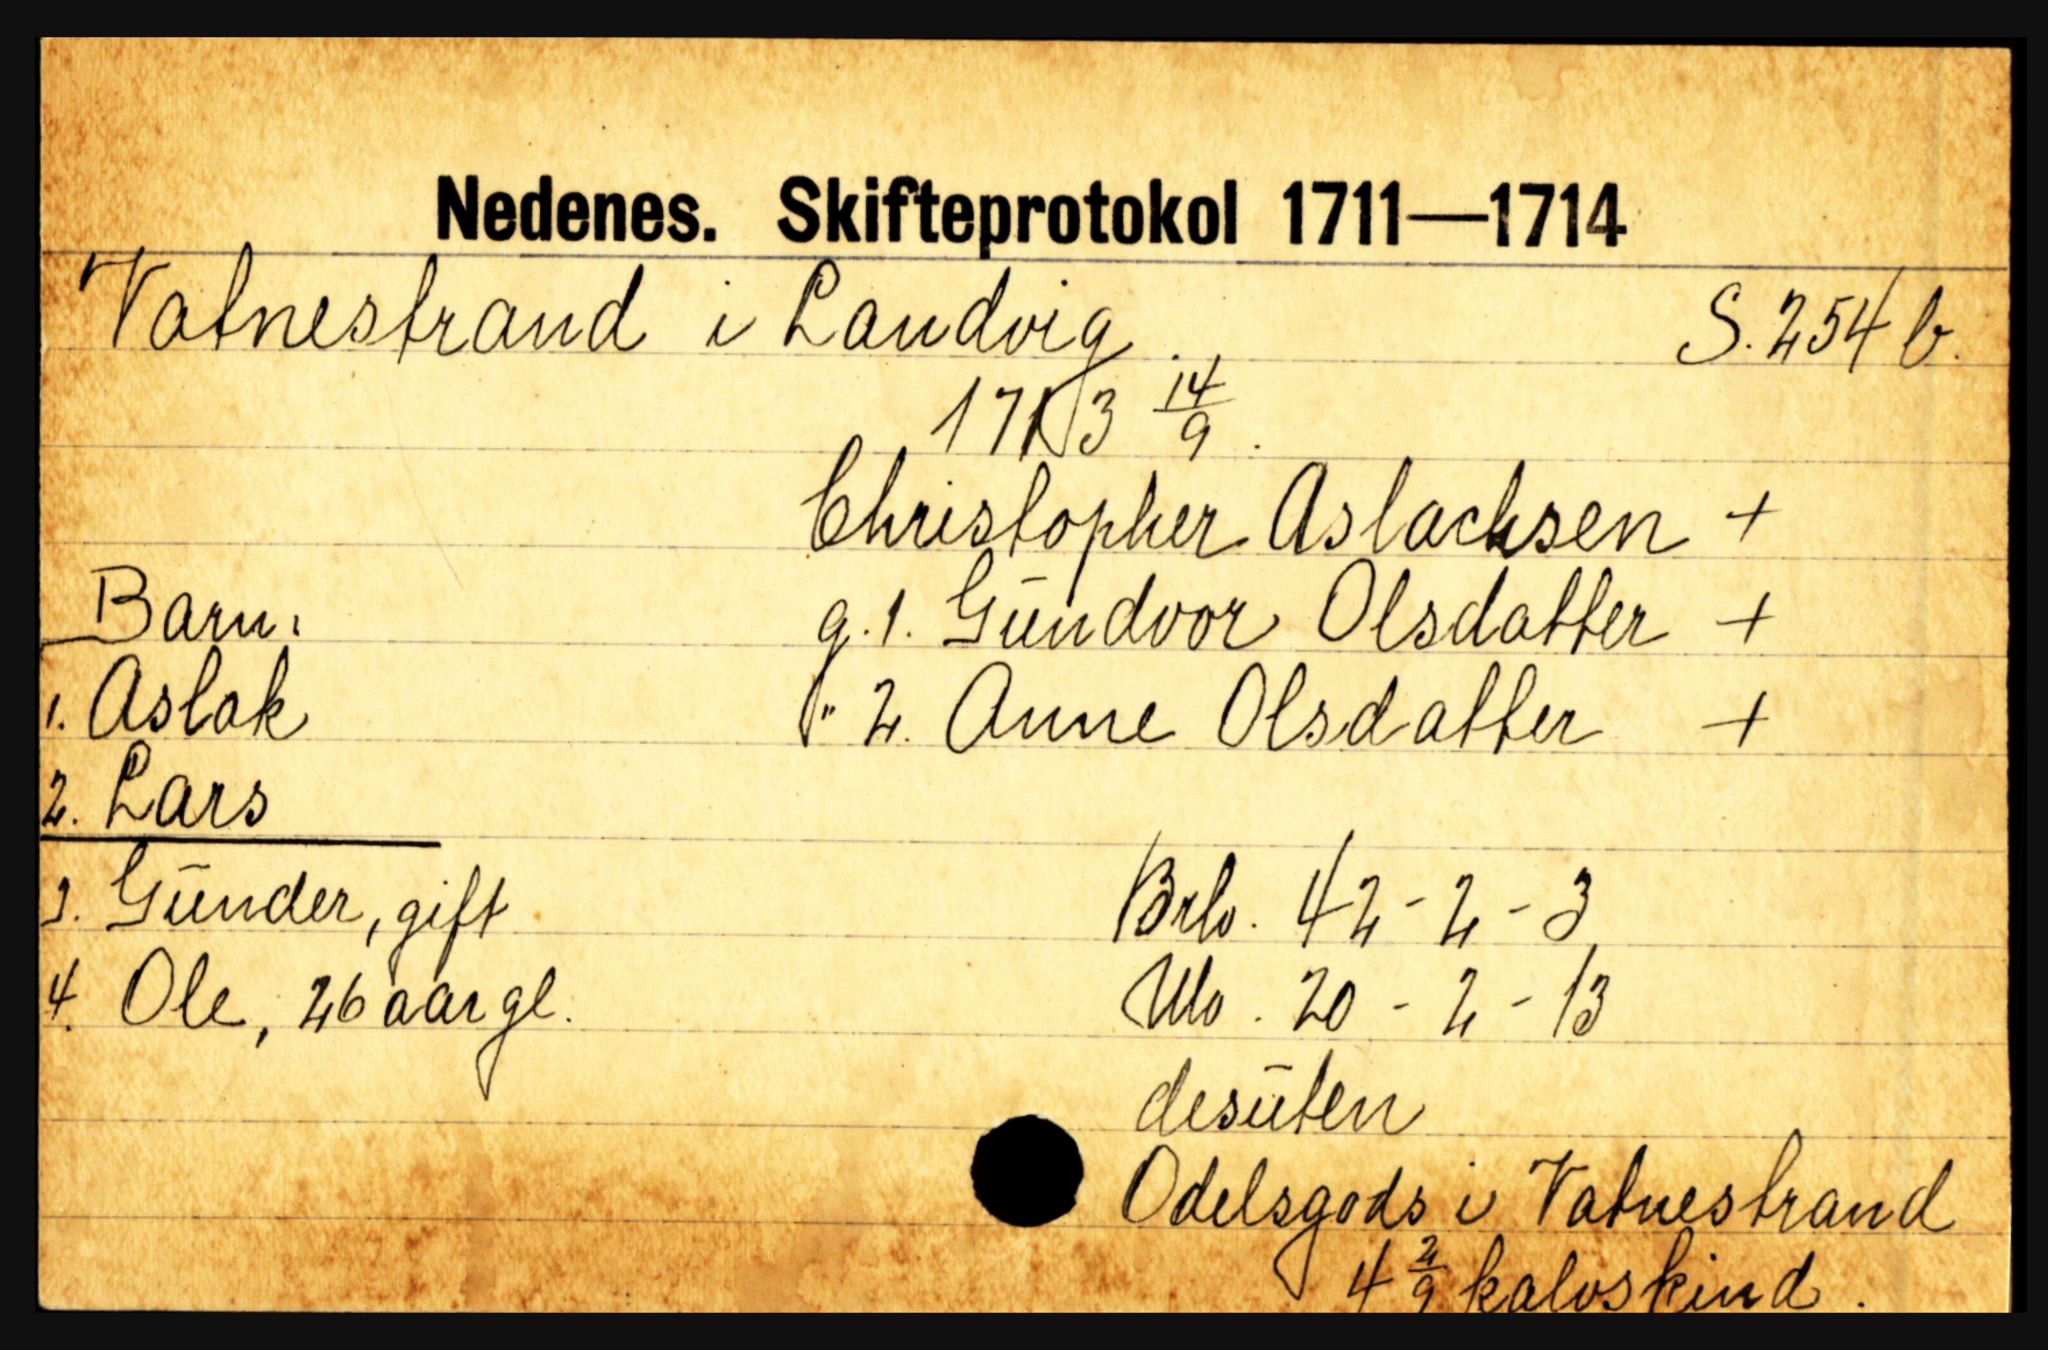 Nedenes. Skifteprotokol 1711—1714
Vatnestrand i Landvig. S. 254 b.
1713 14/9.
Christopher Aslachsen +
g. 1. Gūndvor Olsdatter +
" 2. Anne Olsdatter +
Barn:
1. Aslak
2. Lars
3. Gūnder, gift
4. Ole, 26 aar gl.
Brb. 42 - 2 - 3
Nb. 20 - 2 - 13
desūten
Odelsgods i Vatnestrand
4 2/9 kalvskind.